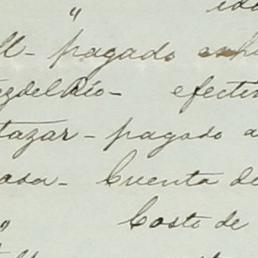 "
ll- pagado
ezdelRio- efecti
tazar- pagado a
asa- Cuenta de
" Costo de